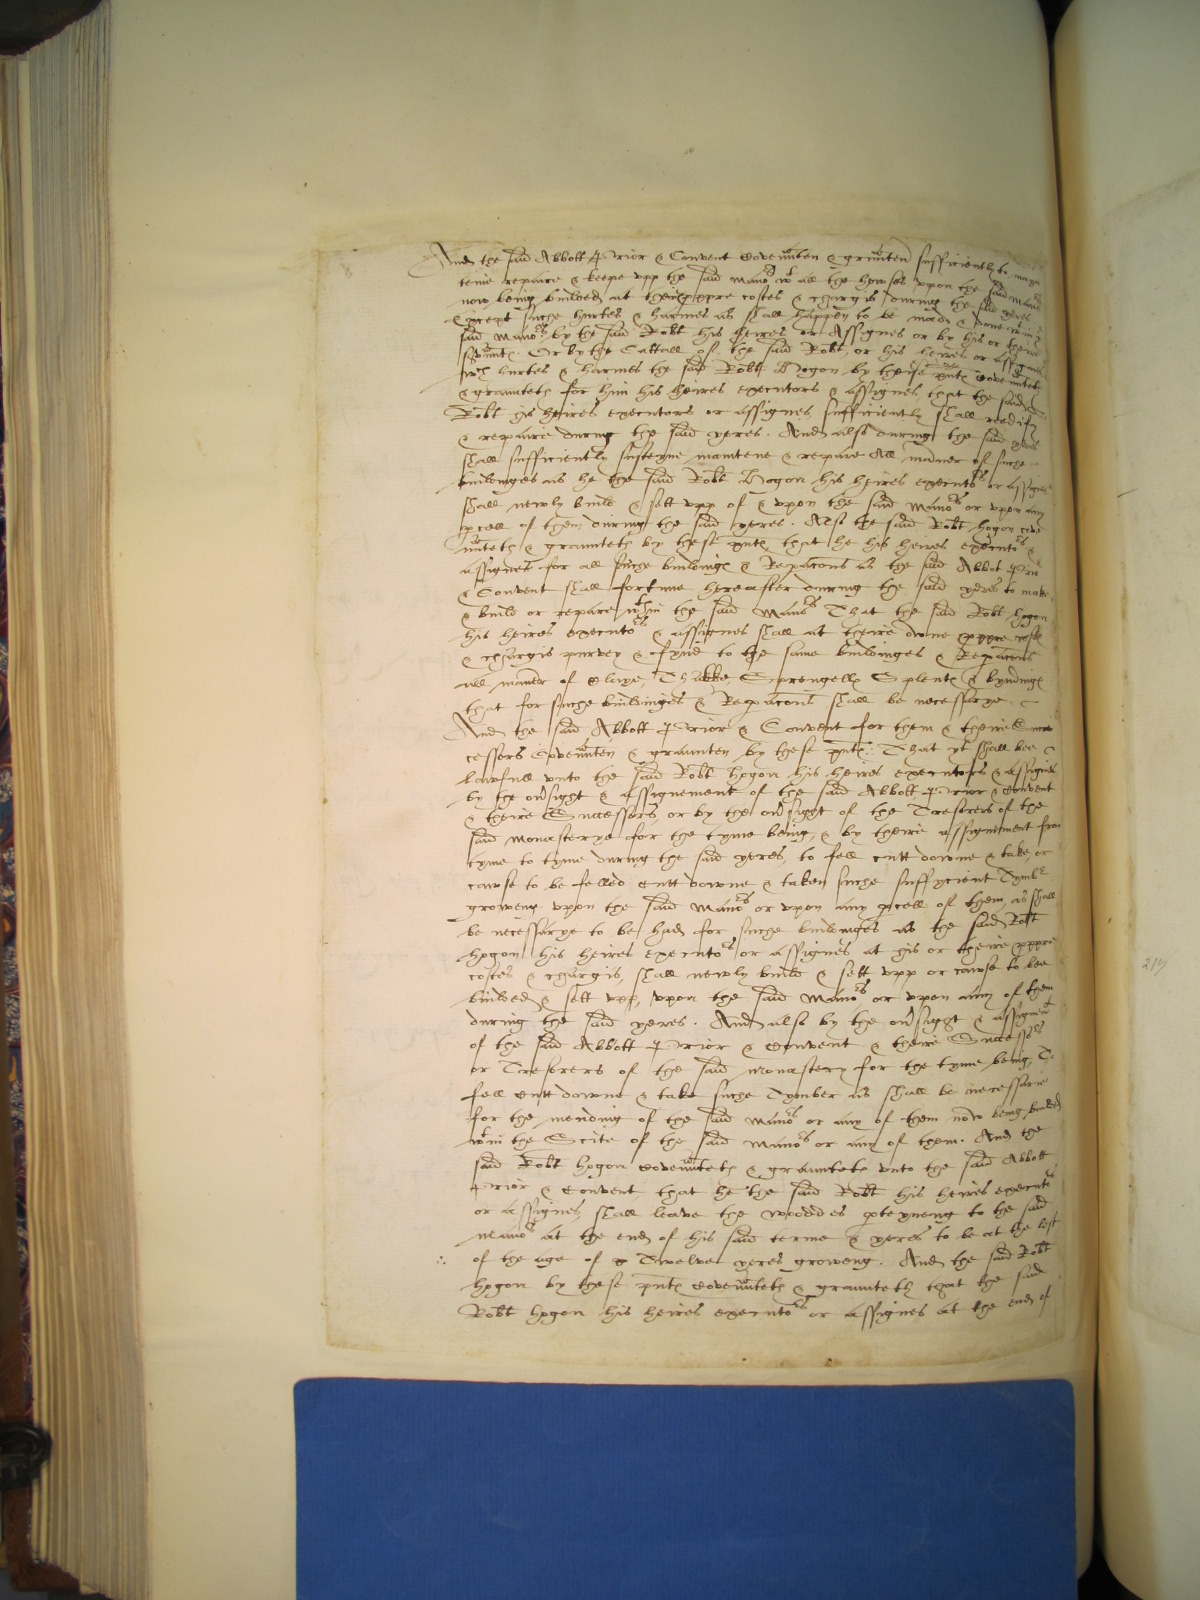 And the said Abbott Prior & Convent Covennten & grunten sufficiently to mayn
teine repaire & keepe vpp the said mano^rs w^t all the howses vpon the said mano^rs
now being builded at their ppre costes & chargis during the said yeres
Except suche hurtes & harmes as shall happen to be made & done
said Mano^rs by the said Robt his heires or Assignes or by his or theire
s^runt^s Or by the Cattall of the said Robt, or his heires or assignes
w^ch hurtes & harmes the said Robt Hogon by theise pnt^s Covennteth
& graunteth for him his heires executors & assignes, that the said
Robt his heires executors or assignes sufficiently shall reedify
& repaire during the said yeres. And also during the said yeres
shall sufficiently susteyne maintene & repaire All maner of suche
buildinges as he the said Robt Hogon his heires executo^rs or assignes
shall newly build & sett vpp of & vpon the said mano^rs or vpon any
pcell of them during the said yeres. Also the said Robt hogon cove
nnteth & graunteth by these pnt^s that he his heires executo^rs &
assignes for all suche buildings & Repacons as the said Abbot Prior
& Convent shall fortune hereafter during the said yeres to make
& build or repare w^thin the said Mano^rs That the said Robt hogon
his heires executo^rs & assignes shall at theire owne ppre costs
& chargis purvey & fynd to the same buildinges & Repacons
all maner of claye, Thakke, Sprengells Splents & byndings
that for suche buildinges & Repacons shall be necessarye.
And the said Abbott Prior & Convent for them & theire Succ
cessors Covennten & graunten by these pnts. That yt shall bee
lawfull vnto the said Robt hogon his heires executors & assignes
by the ou^rsight & assignement of the said Abbott Prior & Convent
& theire Successors, or by the ou^rsight of the Tresorers of the
said Monasterye for the tyme being, & by theire assignement from
tyme to tyme during the said yeres, to fell cutt downe & take, or
cawse to be felled cutt downe & taken suche suffycient Tymb^r
groweng vpon the said Mano^rs or vpon any pcell of them, as shall
be necessarye to be had for suche buildinges as the said Robt
hogon his heires executo^rs or assignes at his or theire ppre
costes & chargis, shall newly build & sett vpp or cawse to bee
builded & sett vpp, vpon the said Mano^rs or vpon any of them
during the said yeres. And also by the ou^rsight & assignem^t
of the said Abbott Prior & Convent & theire Successo^rs
or Tresorers of the said Monastery for the tyme being, To
fell cutt downe & take suche Tymber as shall be necessarie
for the mending of the said Mano^rs or any of them now being builded
w^tin the Scite of the said Mano^rs or any of them. And the
said Robt hogon Covennteth & graunteth vnto the said Abbott
Prior & Convent that he the said Robt his heires executo^rs
or assignes, shall leave the woodd es pteyneng to the said
Mano^rs at the end of his said terme & yeres to be at the lest
of the age of Twelve yeres groweng. And the said Robt
hogon by these pnt^s Covennteth & graunteth that the said
Robt hogon his heires executo^rs or assignes at the end of